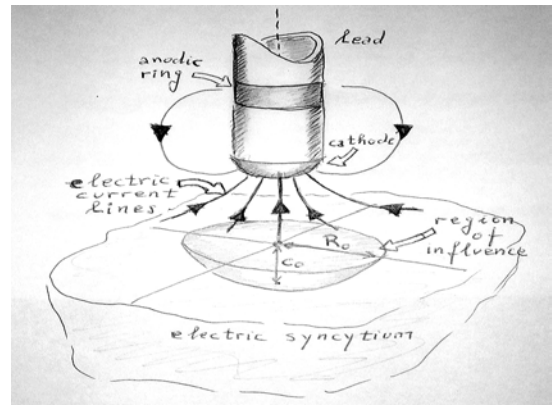 Lead
anodic
ring
cathode
electric
current
lines
region
of
influence
Ro
Co
electric syncytium